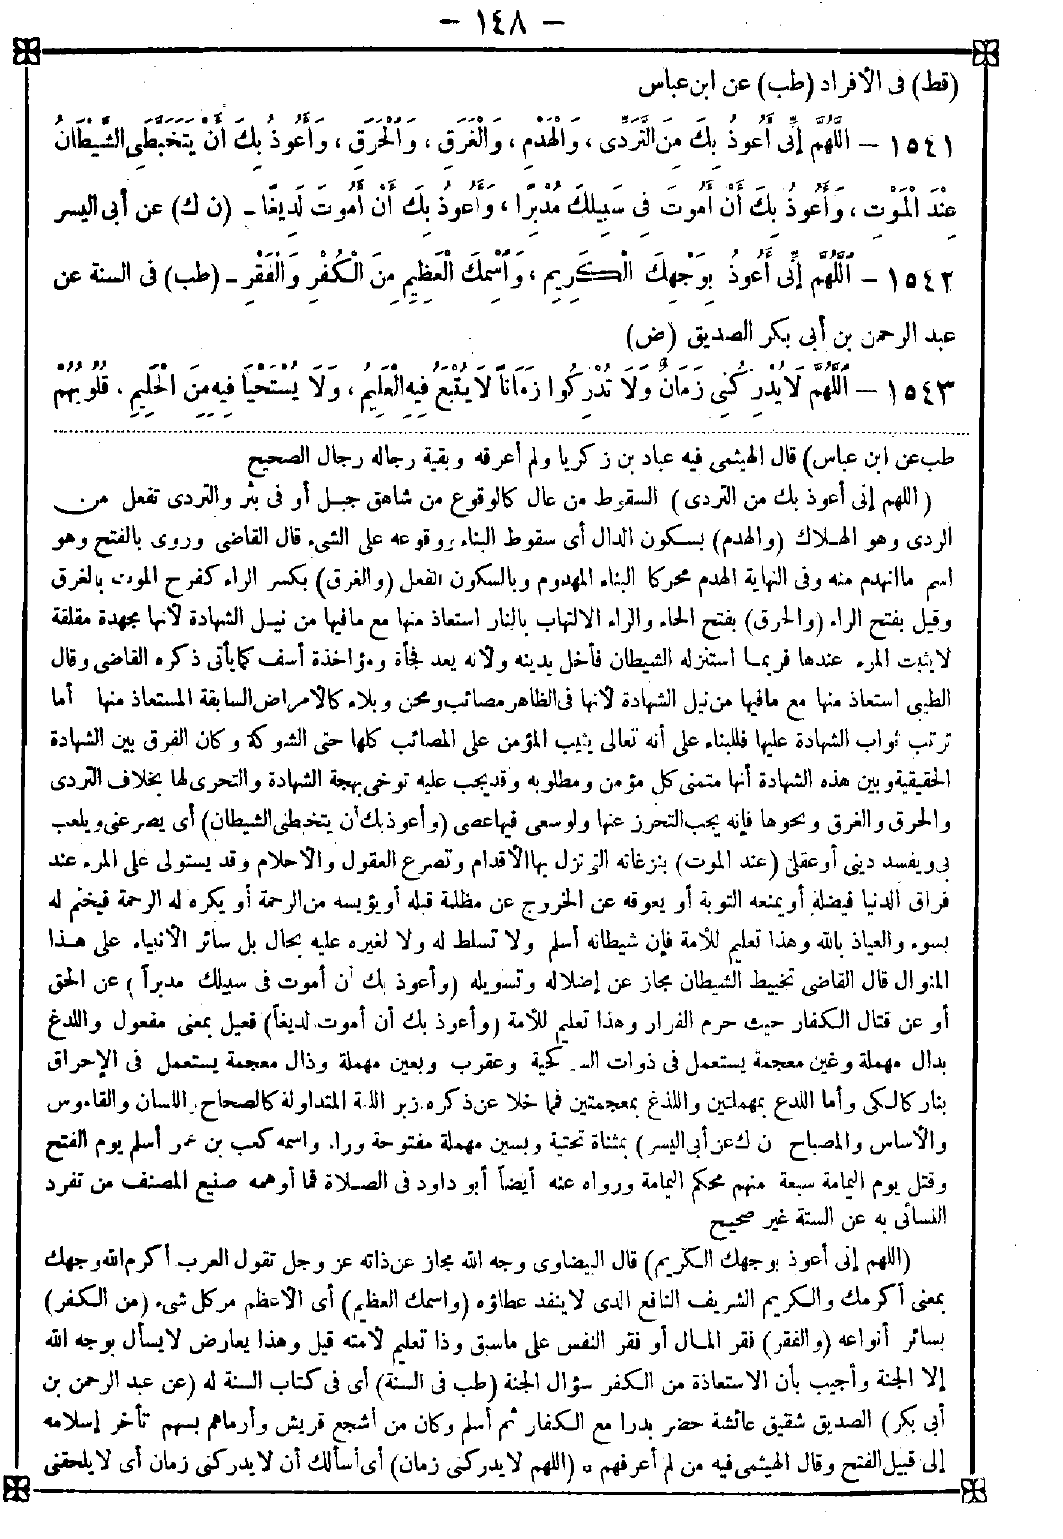 – ١٤٨ –
(قط) فى الأفراد (طب) عن ابن عباس
١٥٤١ – اَللَّهُمَّ إِنِّى أَعُوذُ بِكَ مِنَ التَّرَدِّى ، وَالْهَدْمِ ، وَالْغَرَقِ ، وَالْحَرَقِ ، وَأَعُوذُ بِكَ أَنْ يَتَخَبَّطَنِى الشَّيْطَانُ
عِنْدَ الْمَوْتِ ، وَأَعُوذُ بِكَ أَنْ أَمُوتَ فِى سَبِيلِكَ مُدْبِرًا ، وَأَعُوذُ بِكَ أَنْ أَمُوتَ لَدِيغًا - (ن ك) عن أبى اليسر
١٥٤٢ – اَللَّهُمَّ إِنِّى أَعُوذُ بِوَجْهِكَ الْكَرِيمِ ، وَاسْمِكَ الْعَظِيمِ مِنَ الْكُفْرِ وَالْفَقْرِ - (طب) فى السنة عن
عبد الرحمن بن أبى بكر الصديق (ض)
١٥٤٣ – اَللَّهُمَّ لَا يُدْرِكُنِى زَمَانٌ وَلَا تُدْرِكُوا زَمَانًا لَا يُتْبَعُ فِيهِ الْعَلِيمُ ، وَلَا يُسْتَحْيَا فِيهِ مِنَ الْحَلِيمِ . قُلُوبُهُمْ
طب عن ابن عباس) قال الهيثمى فيه عباد بن زكريا ولم أعرفه وبقية رجاله رجال الصحيح
(اللهم إنى أعوذ بك من التردى) السقوط من عال كالوقوع من شاهق جبل أو فى بئر والتردى تفعل من
الردى وهو الهلاك (والهدم) بسكون الدال أى سقوط البناء ووقوعه على الشىء قال القاضى وروى بالفتح وهو
اسم ما انهدم منه وفى النهاية الهدم محركا البناء المهدوم وبالسكون الفعل (والغرق) بكسر الراء كفرح الموت بالغرق
وقيل بفتح الراء (والحرق) بفتح الحاء والراء الالتهاب بالنار استعاذ منها مع مافيها من نيل الشهادة لأنها مجهدة مقلقة
لا يثبت المرء عندها فربما استنزله الشيطان فأخل بدينه ولأنه يعد فجأة ومؤاخذة أسف كما يأتى ذكره القاضى وقال
الطيبى استعاذ منها مع مافيها من نيل الشهادة لأنها فى الظاهر مصائب ومحن وبلاء كالأمراض السابقة المستعاذ منها أما
ترتب ثواب الشهادة عليها فللبناء على أنه تعالى يثيب المؤمن على المصائب كلها حتى الشوكة وكان الفرق بين الشهادة
الحقيقية وبين هذه الشهادة أنها متمنى كل مؤمن ومطلوبه وقد يجب عليه توخى بهجة الشهادة والتحرى لها بخلاف التردى
والحرق والغرق ونحوها فإنه يجب التحرز عنها ولو سعى فيها عصى (وأعوذ بك أن يتخبطنى الشيطان) أى يصرعنى ويلعب
بى ويفسد دينى أو عقلى (عند الموت) بنزغاته التى تزل بها الأقدام وتصرع العقول والأحلام وقد يستولى على المرء عند
فراق الدنيا فيضله أو يمنعه التوبة أو يعوقه عن الخروج عن مظلمة قبله أو يؤيسه من الرحمة أو يكره له الرحمة فيختم له
بسوء والعياذ بالله وهذا تعليم للأمة فإن شيطانه أسلم ولا تسلط له ولا لغيره عليه بحال بل سائر الأنبياء على هذا
المنوال قال القاضى تخبيط الشيطان مجاز عن إضلاله وتسويله (وأعوذ بك أن أموت فى سبيلك مدبراً) عن الحق
أو عن قتال الكفار حيث حرم الفرار وهذا تعليم للأمة (وأعوذ بك أن أموت لديغاً) فعيل بمعنى مفعول واللدغ
بدال مهملة وغين معجمة يستعمل فى ذوات السم كحية وعقرب وبعين مهملة وذال معجمة يستعمل فى الإحراق
بنار كالكى وأما اللدع بمهملتين واللذغ بمعجمتين فما خلا عن ذكره زبر اللغة المتداولة كالصحاح واللسان والقاموس
والأساس والمصباح ن ك عن أبى اليسر) بمثناة تحتية وبسين مهملة مفتوحة وراء واسمه كعب بن عمر أسلم يوم الفتح
وقتل يوم اليمامة سبعة منهم محكم اليمامة ورواه عنه أيضاً أبو داود فى الصلاة فما أوهمه صنيع المصنف من تفرد
النسائى به عن الستة غير صحيح
(اللهم إنى أعوذ بوجهك الكريم) قال البيضاوى وجه الله مجاز عن ذاته عز وجل تقول العرب أكرم الله وجهك
بمعنى أكرمك والكريم الشريف النافع الذى لا ينفد عطاؤه (واسمك العظيم) أى الأعظم من كل شىء (من الكفر)
بسائر أنواعه (والفقر) فقر المال أو فقر النفس على ماسبق وذا تعليم لأمته قيل وهذا يعارض لا يسأل بوجه الله
إلا الجنة وأجيب بأن الاستعاذة من الكفر سؤال الجنة (طب فى السنة) أى فى كتاب السنة له (عن عبد الرحمن بن
أبى بكر) الصديق شقيق عائشة حضر بدرا مع الكفار ثم أسلم وكان من أشجع قريش وأرماهم بسهم تأخر إسلامه
إلى قبيل الفتح وقال الهيثمى فيه من لم أعرفهم ، (اللهم لا يدركنى زمان) أى أسألك أن لا يدركنى زمان أى لا يلحقنى